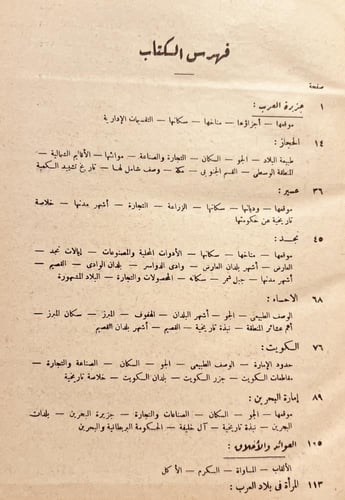 فهرس الكتاب
صفحة
١ جزيرة العرب :
موقعها — أجزاؤها — مناخها — سكانها — التقسيمات الإدارية
١٤ الحجاز :
طبيعة البلاد — الجو — السكان — التجارة والصناعة — موانئها — الأقاليم الشمالية —
المنطقة الوسطى — القسم الجنوبى — مكة — وصف شامل لها — تاريخ تشييد الكعبة
٣٦ عسير :
موقعها — وديانها — سكانها — الزراعة — التجارة — أشهر مدنها — خلاصة
تاريخية عن حكومتها
٤٥ نجد :
موقعها — مناخها — سكانها — الأدوات المحلية والمصنوعات — إيالات نجد —
العارض — أشهر بلدان العارض — وادى الدواسر — بلدان الوادى — القصيم —
أشهر مدنها — جبل شمر — سكانه — المحصولات والتجارة — البلاد المشهورة
٦٨ الأحساء :
الوصف الطبيعى — الجو — أشهر البلدان — الهفوف — المبرز — سكان المبرز —
أهم عشائر المنطقة — نبذة تاريخية — القصيم — أشهر بلدان القصيم
٧٦ الكويت :
حدود الإمارة — الوصف الطبيعى — الجو — السكان — الصناعة والتجارة —
مقاطعات الكويت — جزر الكويت — بلدان الكويت — خلاصة تاريخية
٨٩ إمارة البحرين :
موقعها — الجو — السكان — الصناعات والتجارة — جزيرة البحرين — بلدان
البحرين — نبذة تاريخية — آل خليفة — الحكومة البريطانية والبحرين
١٠٥ العوائد والأخلاق :
الألقاب — المساواة — السكرم — الأكل
١١٣ المرأة فى بلاد العرب :